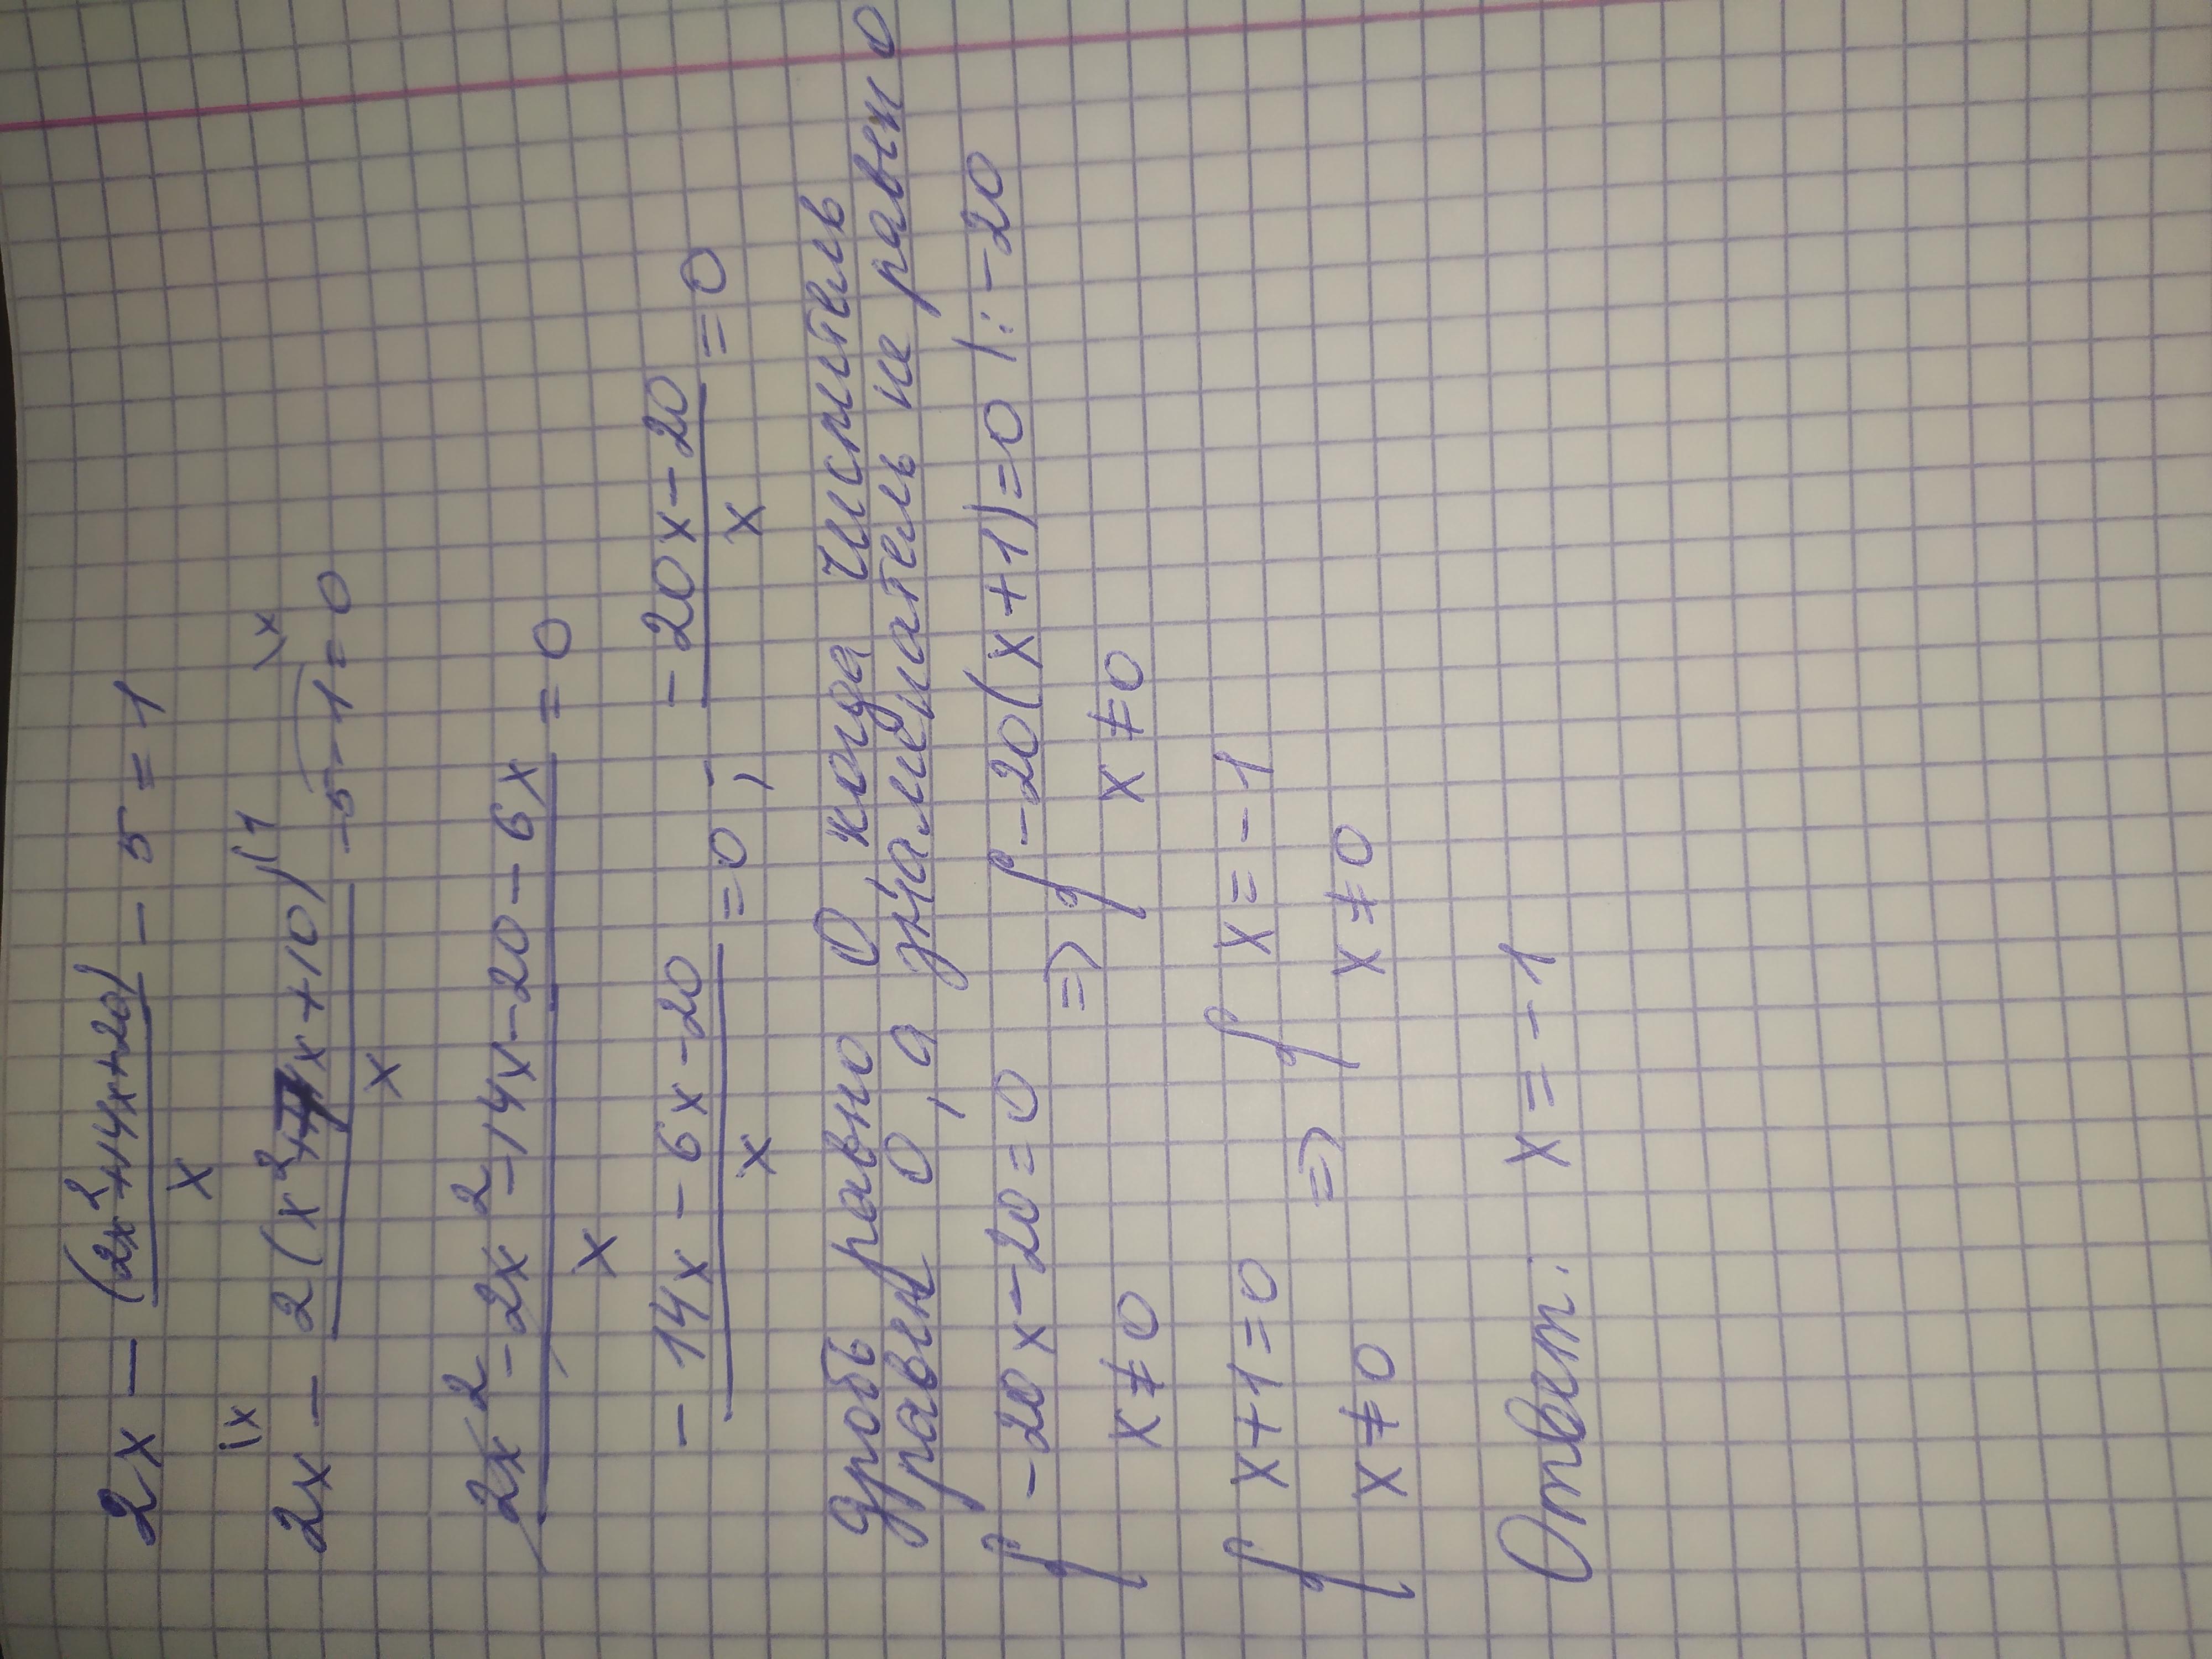 2x - (2x²+14x+20)/x - 5 = 1
2x\x - 2(x²+7x+10)\1/x - 5 - 1\x = 0
2x² - 2x² - 14x - 20 - 6x/x = 0
-14x - 6x - 20/x = 0; -20x - 20/x = 0
дробь равно 0 когда числитель
равен 0, а знаменатель не равен 0
{-20x - 20 = 0 => {-20(x+1) = 0 |: -20
x ≠ 0 x ≠ 0
{x+1 = 0 => {x = -1
x ≠ 0 x ≠ 0
Ответ: x = -1